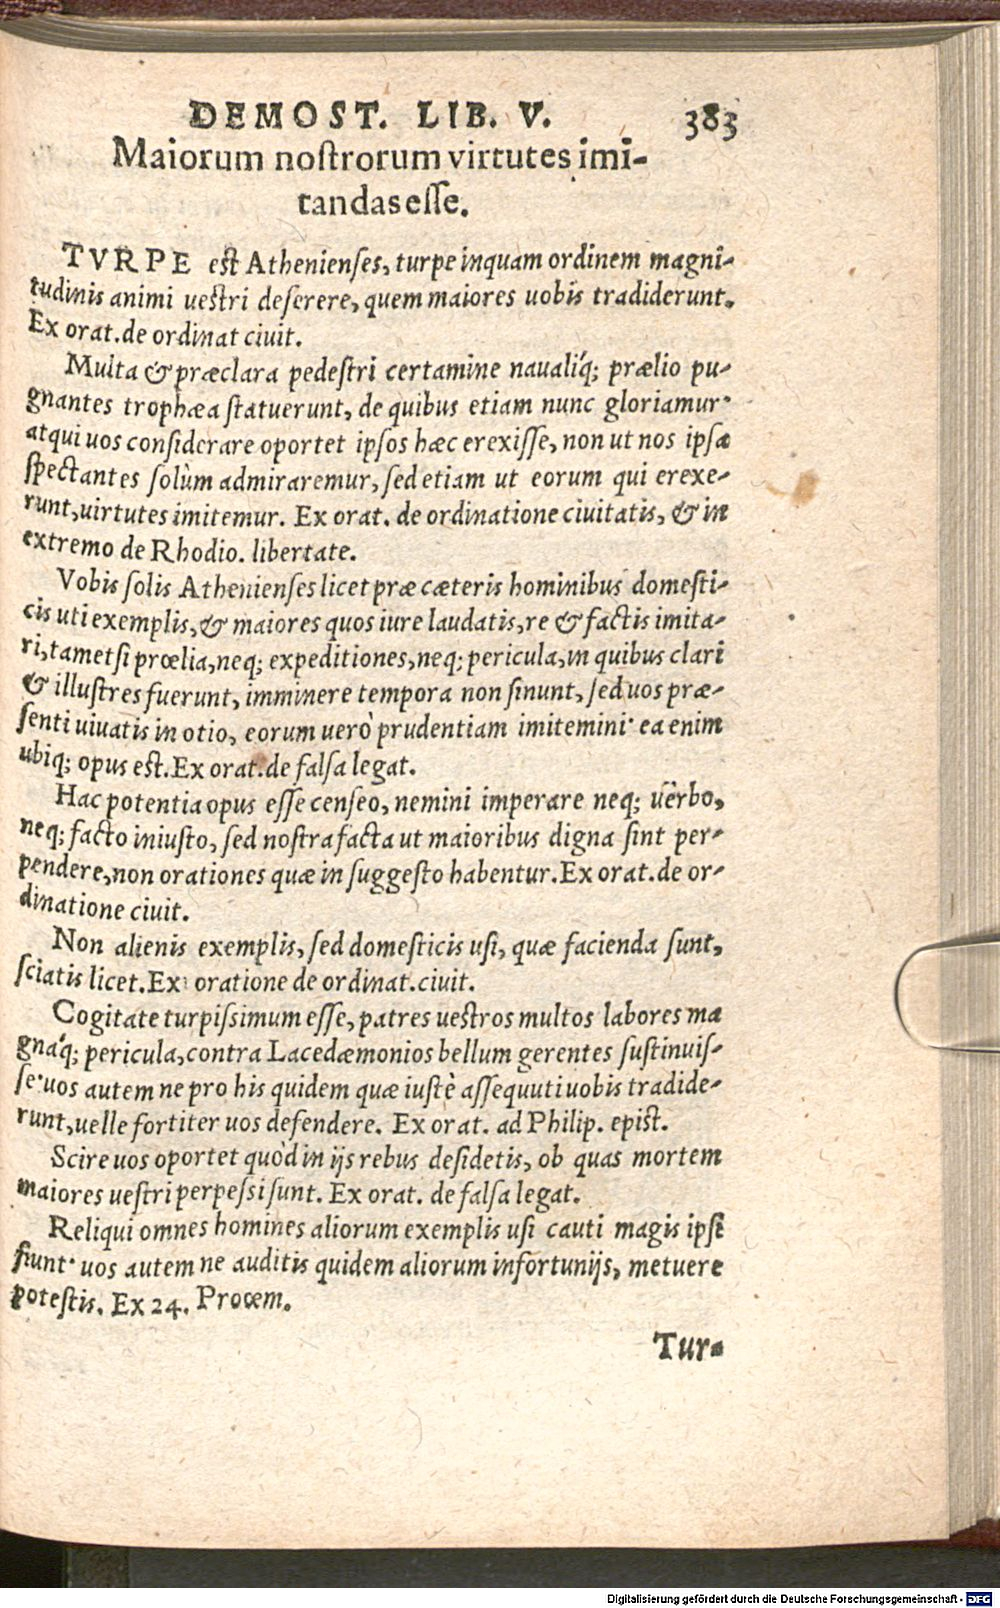 DEMOST. LIB. V. 383
Maiorum noſtrorum virtutes imi-
tandas eſſe.
TVRPE est Athenienſes, turpe inquam ordinem magni-
tudinis animi uestri deſerere, quem maiores uobis tradiderunt.
Ex orat. de ordinat ciuit.
Multa & præclara pedeſtri certamine naualiq́; prælio pu-
gnantes trophæa ſtatuerunt, de quibus etiam nunc gloriamur·
atqui uos conſiderare oportet ipſos hæc erexiſſe, non ut nos ipſa
ſpectantes ſolùm admiraremur, ſed etiam ut eorum qui erexe-
runt, uirtutes imitemur. Ex orat. de ordinatione ciuitatis, & in
extremo de Rhodio. libertate.
Vobis ſolis Athenienſes licet præ cæteris hominibus domeſti-
cis uti exemplis, & maiores quos iure laudatis, re & factis imita-
ri, tametſi prœlia, neq; expeditiones, neq; pericula, in quibus clari
& illuſtres fuerunt, imminere tempora non ſinunt, ſed uos præ-
ſenti uiuatis in otio, eorum uerò prudentiam imitemini· ea enim
ubiq; opus est. Ex orat. de falſa legat.
Hac potentia opus eſſe cenſeo, nemini imperare neq; uerbo,
neq; facto iniuſto, ſed noſtra facta ut maioribus digna ſint per-
pendere, non orationes quæ in ſuggeſto habentur. Ex orat. de or-
dinatione ciuit.
Non alienis exemplis, ſed domeſticis uſi, quæ facienda ſunt,
ſciatis licet. Ex oratione de ordinat. ciuit.
Cogitate turpiſsimum eſſe, patres uestros multos labores ma
gnaq́; pericula, contra Lacedæmonios bellum gerentes ſuſtinuiſ-
ſe· uos autem ne pro his quidem quæ iuſtè aſſequuti uobis tradide-
runt, uelle fortiter uos defendere. Ex orat. ad Philip. epist.
Scire uos oportet quòd in ijs rebus deſidetis, ob quas mortem
maiores ueſtri perpeſsi ſunt. Ex orat. de falſa legat.
Reliqui omnes homines aliorum exemplis uſi cauti magis ipſi
fiunt· uos autem ne auditis quidem aliorum infortunijs, metuere
poteſtis. Ex 24. Proœm.
Tur-
Digitalisierung gefördert durch die Deutsche Forschungsgemeinschaft - DFG